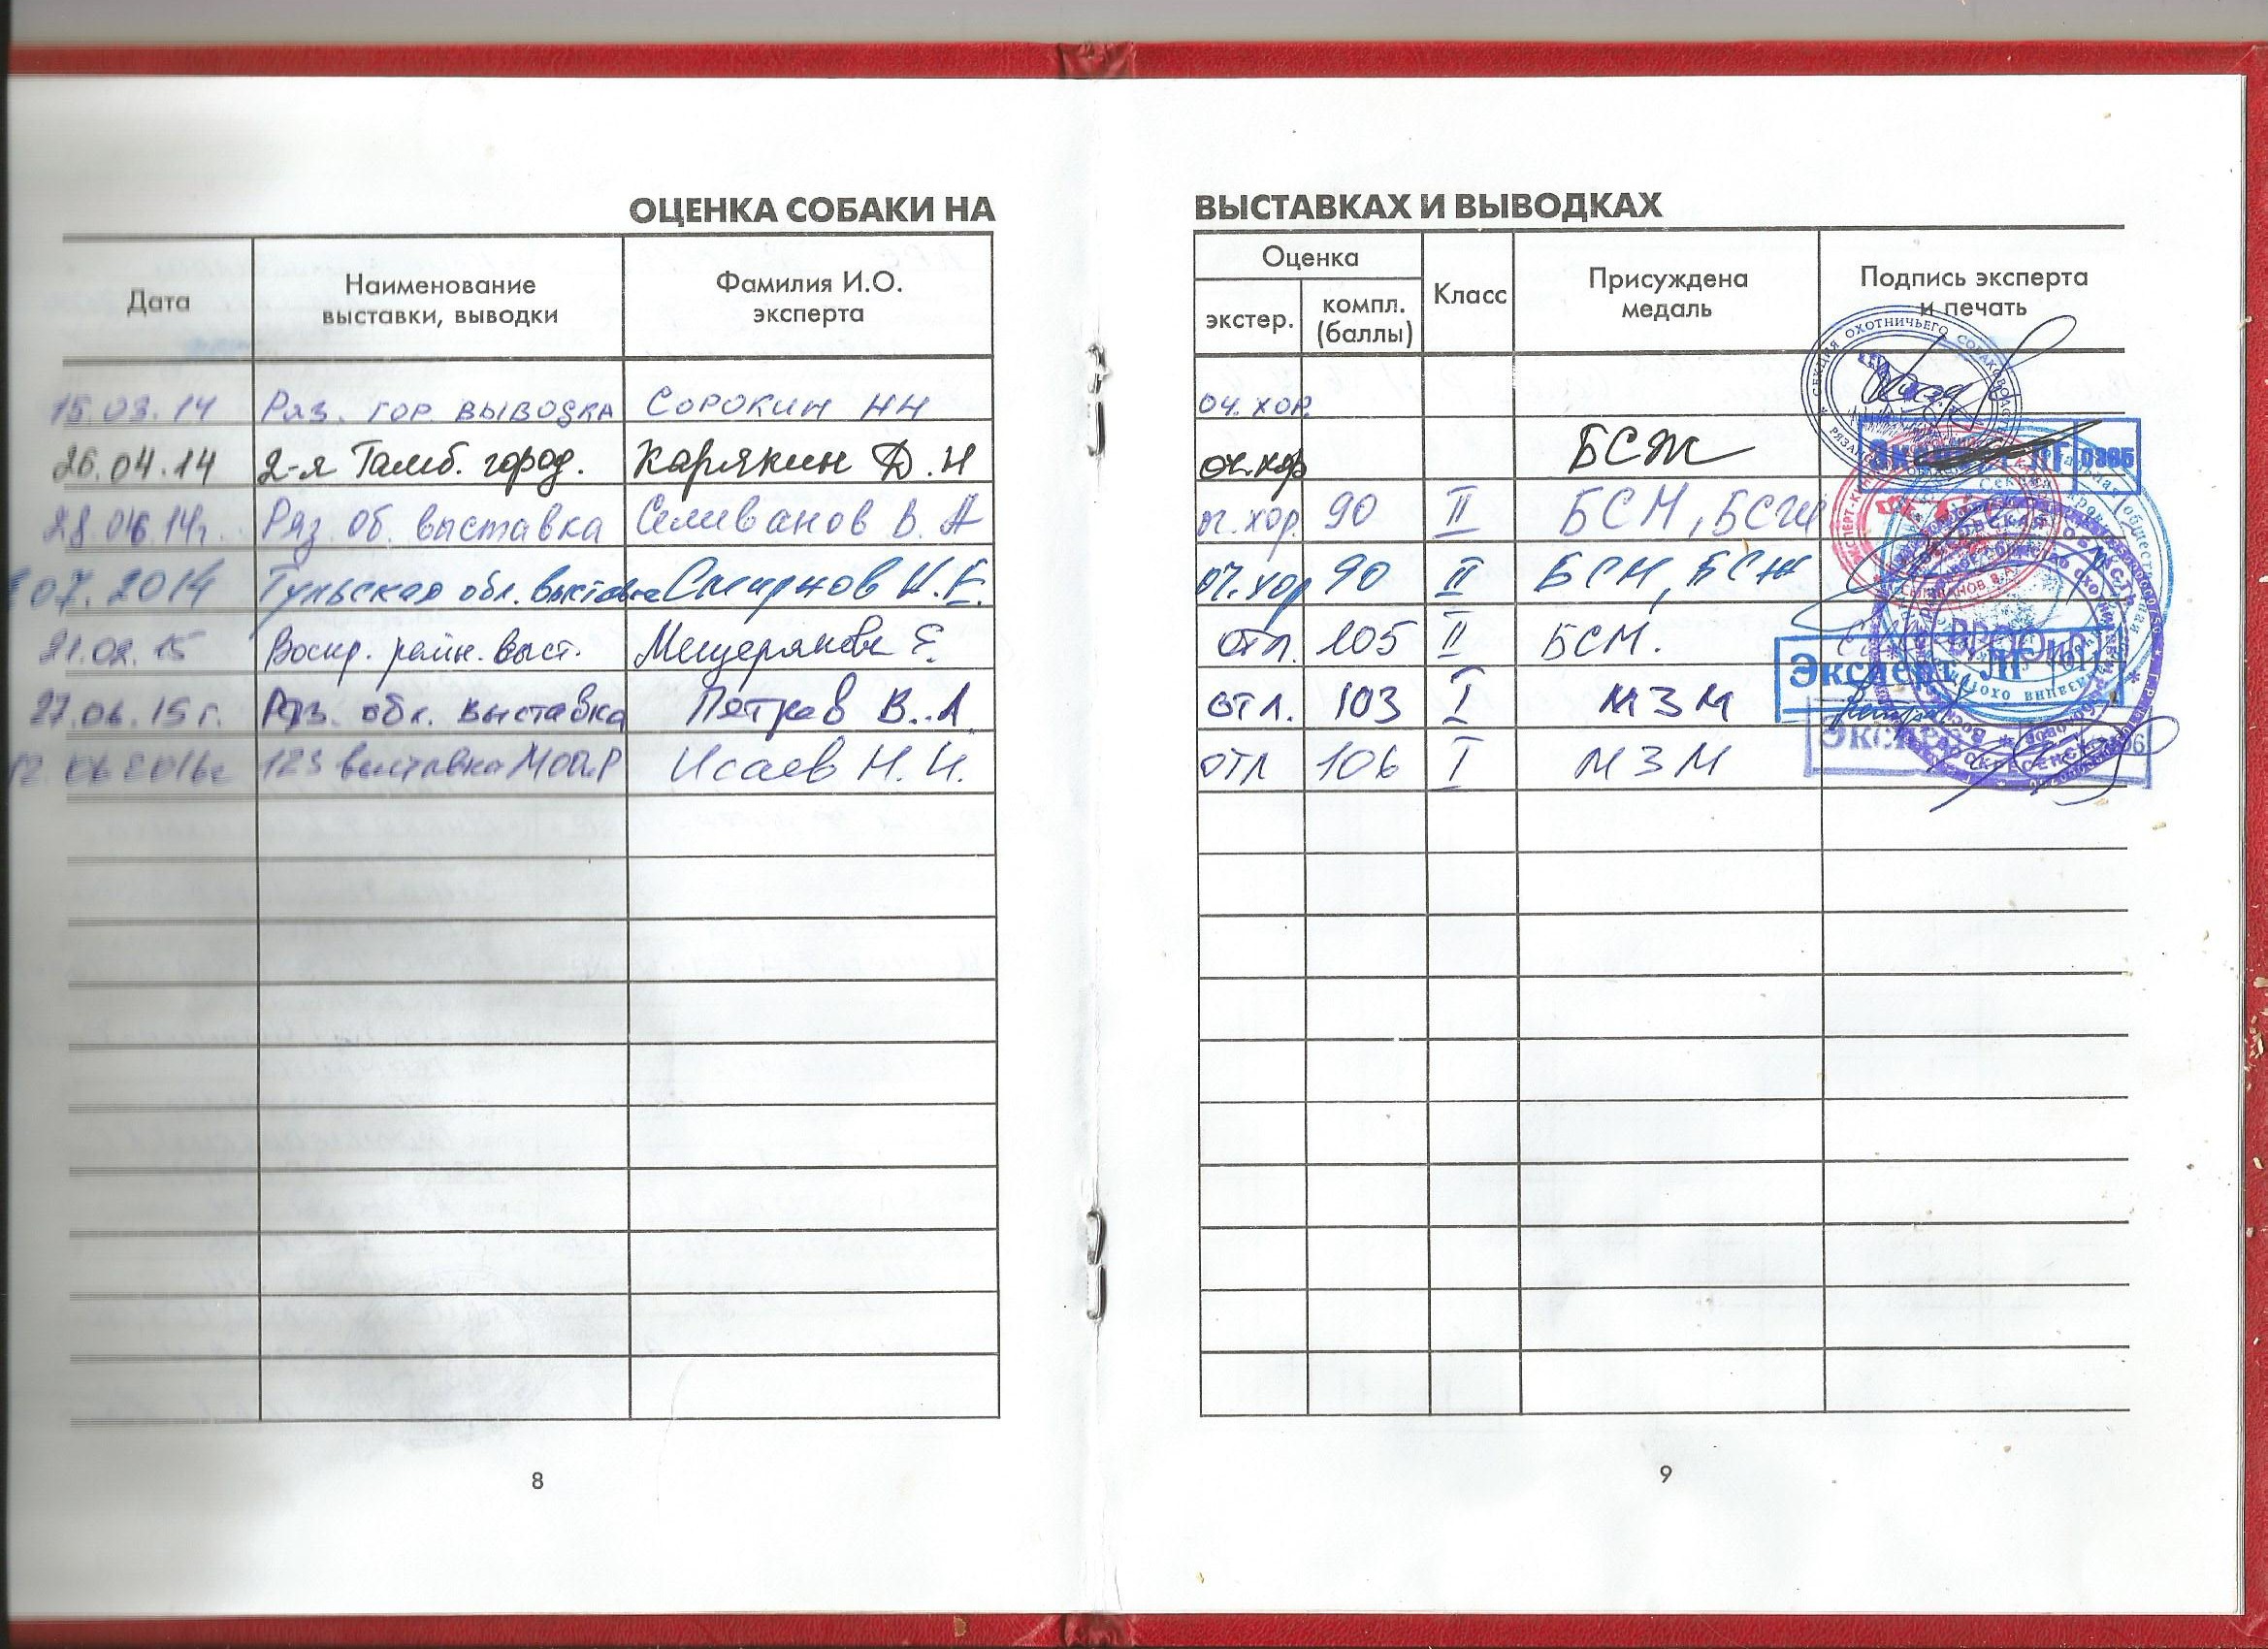 ОЦЕНКА СОБАКИ НА ВЫСТАВКАХ И ВЫВОДКАХ
Дата Наименование выставки, выводки Фамилия И.О. эксперта Оценка экстер. компл. (баллы) Класс Присуждена медаль Подпись эксперта и печать
15.03.14 Ряз. гор. выводка Сорокин НН оч. хор.
26.04.14 2-я Тамб. город. Карякин Д.Н оч.хор БСЖ
28.06.14г. Ряз. об. выставка Селиванов В.А оч.хор. 90 II БСМ, БСЖ
07.2014 Тульская обл. выставка Смирнов И.Е. оч.хор 90 II БСМ, БСЖ
21.02.15 Воскр. район. выст. Мещеряков Е. отл. 105 II БСМ.
27.06.15г. Ряз. обл. выставка Пятков В.А отл. 103 I МЗМ
12.06 2016г 123 выставка МООиР Исаев Н.И. отл 106 I МЗМ
СЕКЦИЯ ОХОТНИЧЬЕГО СОБАКОВОДСТВА
Эксперт ЛГ
Эксперт ЛГ
8
9